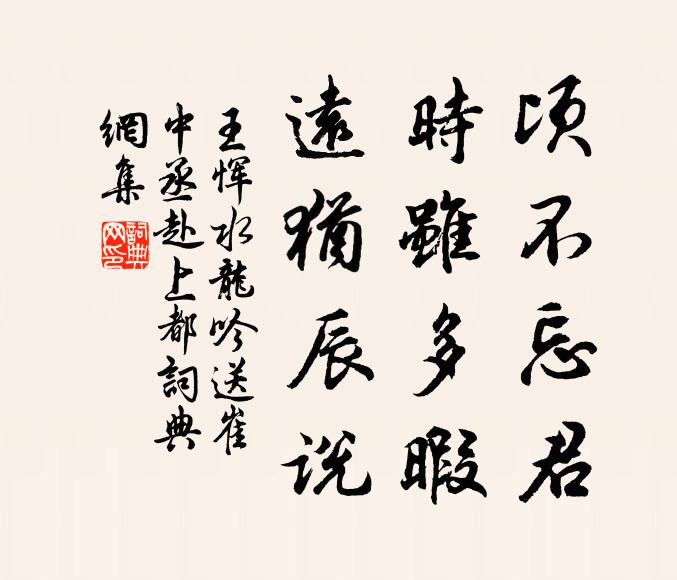 頃不忘君
時雖多暇
遠猶辰説
王惲水龍吟送崔
中丞赴上都詞典
網集
詞典
网印